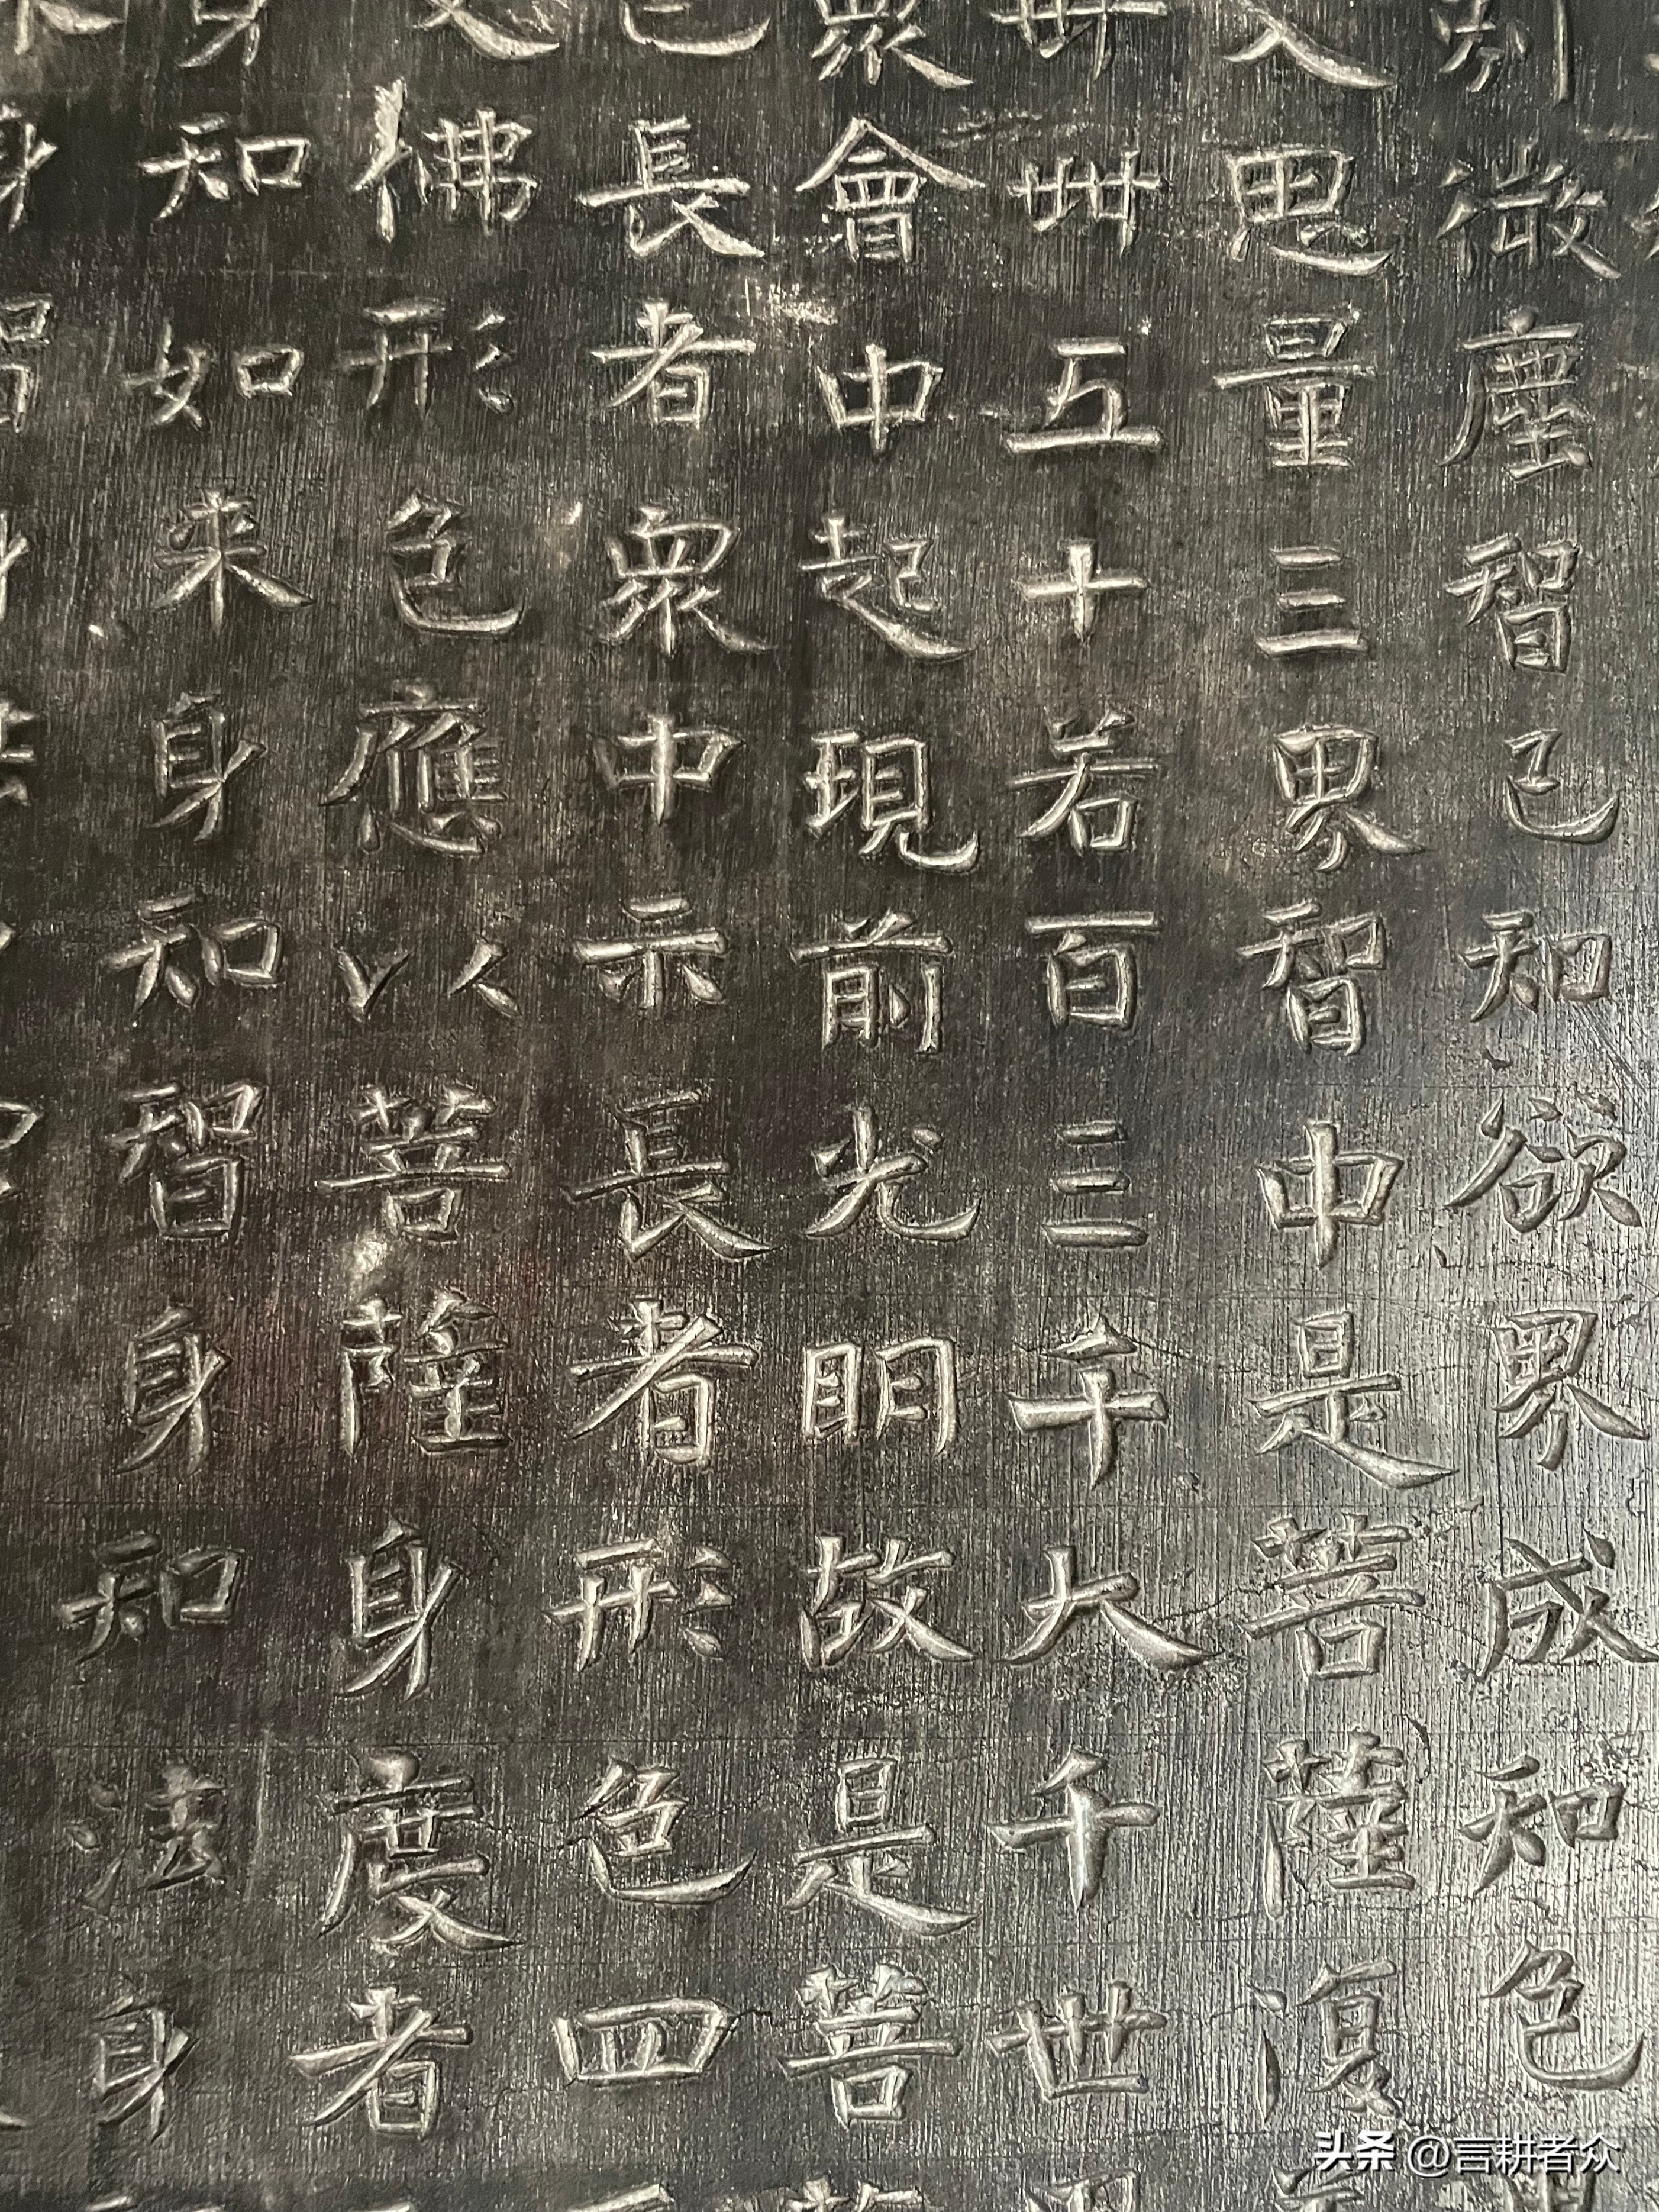 微塵智已知欲界成知色
思量三界智中是菩薩復
卌五十若百三千大千世
眾會中起現前光明故是菩
長者眾中示長者形色四
佛形色應以菩薩身度者
身知如来身知智身知法身
头条 @言耕者众